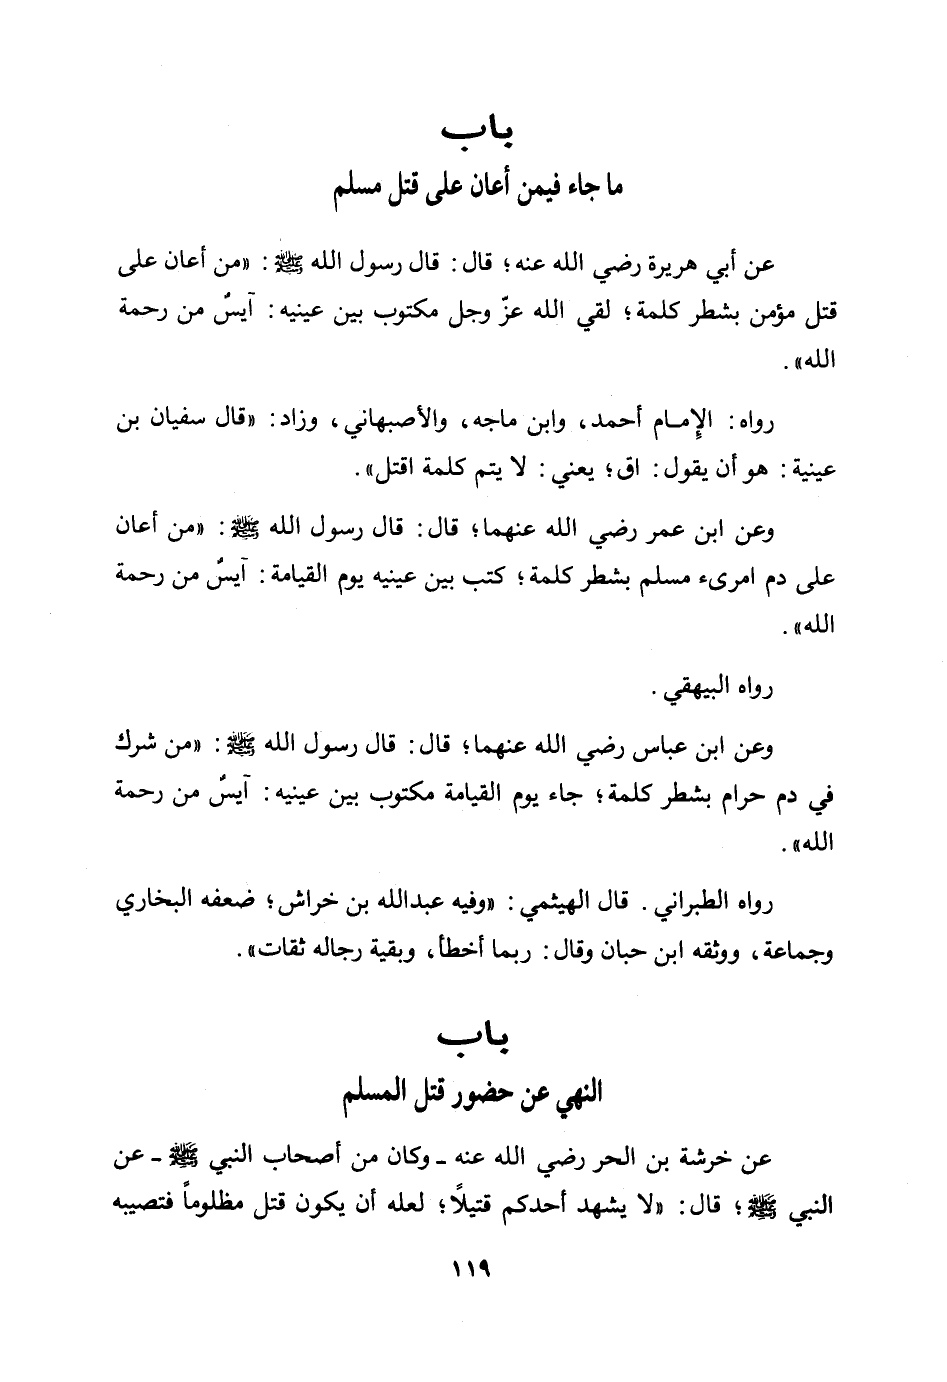 باب
ما جاء فيمن أعان على قتل مسلم
عن أبي هريرة رضي الله عنه؛ قال: قال رسول الله ﷺ: «من أعان على
قتل مؤمن بشطر كلمة؛ لقي الله عزّ وجل مكتوب بين عينيه: آيسٌ من رحمة
الله».
رواه: الإمام أحمد، وابن ماجه، والأصبهاني، وزاد: «قال سفيان بن
عينية: هو أن يقول: اق؛ يعني: لا يتم كلمة اقتل».
وعن ابن عمر رضي الله عنهما؛ قال: قال رسول الله ﷺ: «من أعان
على دم امرىء مسلم بشطر كلمة؛ كتب بين عينيه يوم القيامة: آيسٌ من رحمة
الله».
رواه البيهقي.
وعن ابن عباس رضي الله عنهما؛ قال: قال رسول الله ﷺ: «من شرك
في دم حرام بشطر كلمة؛ جاء يوم القيامة مكتوب بين عينيه: آيسٌ من رحمة
الله».
رواه الطبراني. قال الهيثمي: «وفيه عبدالله بن خراش؛ ضعفه البخاري
وجماعة، ووثقه ابن حبان وقال: ربما أخطأ، وبقية رجاله ثقات».
باب
النهي عن حضور قتل المسلم
عن خرشة بن الحر رضي الله عنه ـ وكان من أصحاب النبي ﷺ ـ عن
النبي ﷺ؛ قال: «لا يشهد أحدكم قتيلاً؛ لعله أن يكون قتل مظلوماً فتصيبه
١١٩